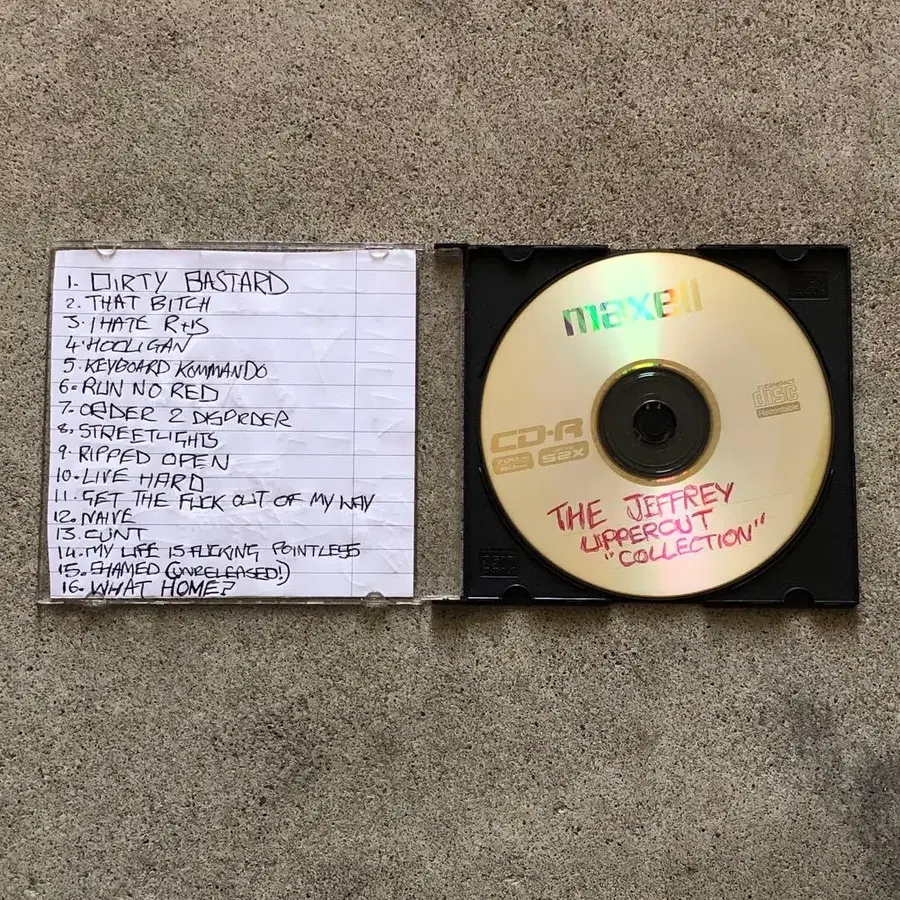 1. DIRTY BASTARD
2. THAT BITCH
3. I HATE R+S
4. HOOLIGAN
5. KEYBOARD KOMMANDO
6. RUN NO RED
7. ORDER 2 DISORDER
8. STREETLIGHTS
9. RIPPED OPEN
10. LIVE HARD
11. GET THE FUCK OUT OF MY WAY
12. NAIVE
13. CUNT
14. MY LIFE IS FUCKING POINTLESS
15. SHAMED (UNRELEASED!)
16. WHAT HOME?
maxell
COMPACT
disc
Recordable
CD-R
700MB
80min
52X
THE JEFFREY
UPPERCUT
"COLLECTION"